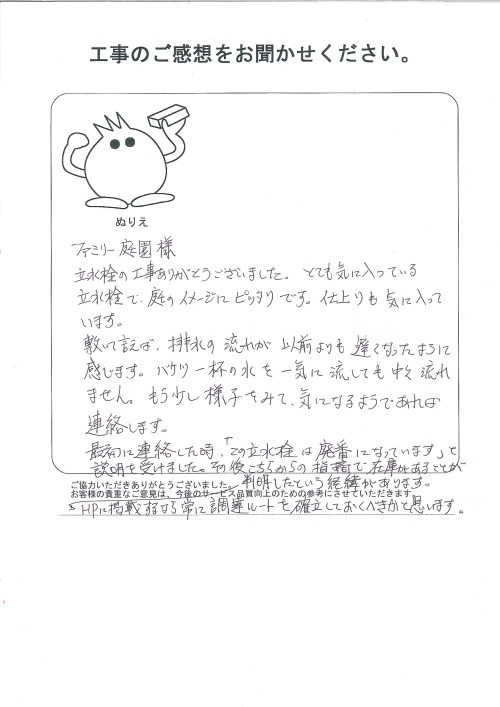 工事のご感想をお聞かせください。
ぬりえ
ファミリー庭園様
立水栓の工事ありがとうございました。とても気に入っている
立水栓で、庭のイメージにピッタリです。仕上りも気に入って
います。
敷いて言えば、排水の流れが以前よりも遅くなったように
感じます。バケツ一杯の水を一気に流しても中々流れ
ません。もう少し様子をみて、気になるようであれば
連絡します。
最初に連絡した時、「この立水栓は廃番になっています」と
説明を受けました。その後こちらからの指摘で在庫があることが
ご協力いただきありがとうございました。判明したという経緯があります。
お客様の貴重なご意見は、今後のサービス品質向上のための参考にさせていただきます。
HPに掲載するなら常に調達ルートを確立しておくべきかと思います。